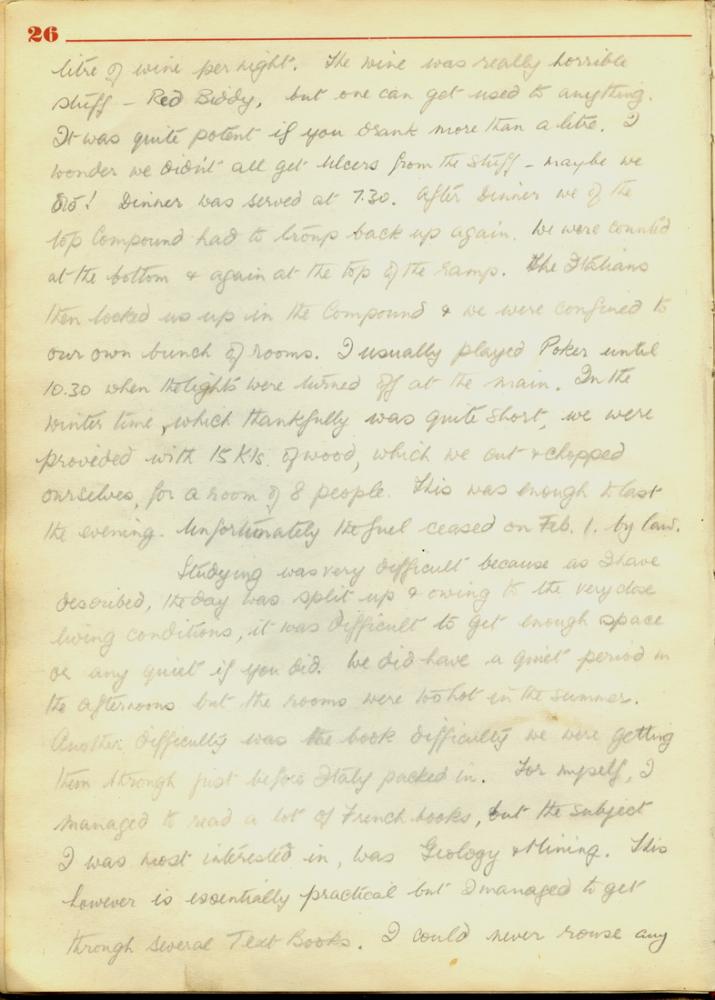 26
litre of wine per night. The wine was really horrible
stuff – Red Biddy, but one can get used to anything.
It was quite potent if you drank more than a litre. I
wonder we didn't all get ulcers from the stuff – maybe we
did! Dinner was served at 7.30. After dinner we of the
top Compound had to tromp back up again. We were counted
at the bottom & again at the top of the ramp. The Italians
then locked us up in the Compound & we were confined to
our own bunch of rooms. I usually played Poker until
10.30 when the lights were turned off at the main. In the
winter time, which thankfully was quite short, we were
provided with 15 Kls. of wood, which we cut & chopped
ourselves, for a room of 8 people. This was enough to last
the evening. Unfortunately the fuel ceased on Feb. 1. by law.
Studying was very difficult because as I have
described, the day was split up & owing to the very close
living conditions, it was difficult to get enough space
or any quiet if you did. We did have a quiet period in
the afternoons but the rooms were too hot in the summer.
Another difficulty was the book difficulty we were getting
them through just before Italy packed in. For myself, I
managed to read a lot of French books, but the subject
I was most interested in, was Geology & Mining. This
however is essentially practical but I managed to get
through several Text Books. I could never rouse any